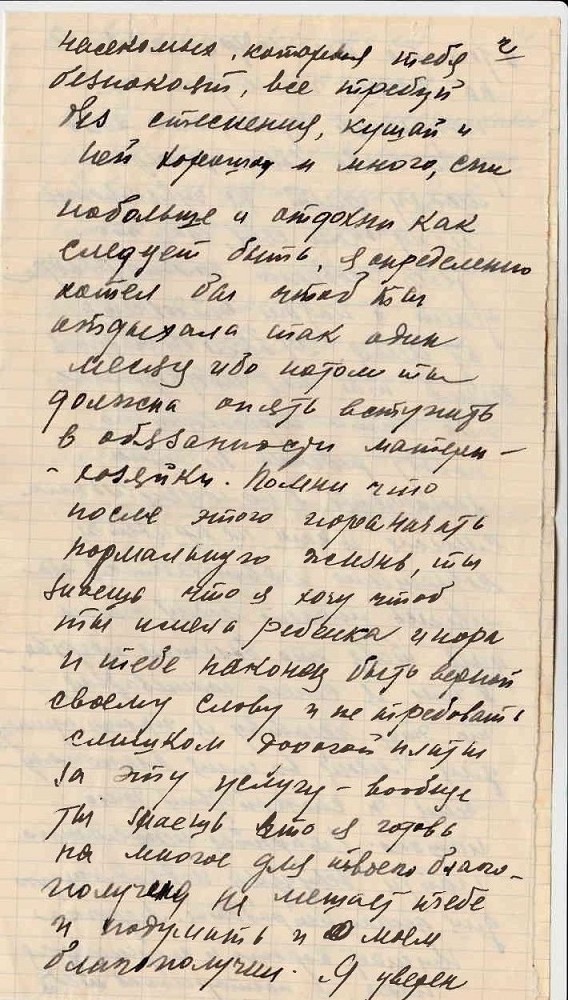 насекомых, которыя тебя 2
безпокоят, все требуй
без стеснения, кушай и
пей хорошо и много, спи
побольше и отдохни как
следует быть, я определенно
хотел бы чтоб ты
отдыхала так один
месяц ибо потом ты
должна опять вступить
в обязанности матери-
- хозяйки. Помни что
после этого пора начать
нормальную жизнь, ты
знаешь что я хочу чтоб
ты имела ребенка и пора
и тебе наконец быть верной
своему слову и не требовать
слишком дорогой платы
за эту услугу - вообще
ты знаешь что я готов
на многое для твоего благо-
получия не мешает тебе
и подумать и о моем
благополучии. Я уверен